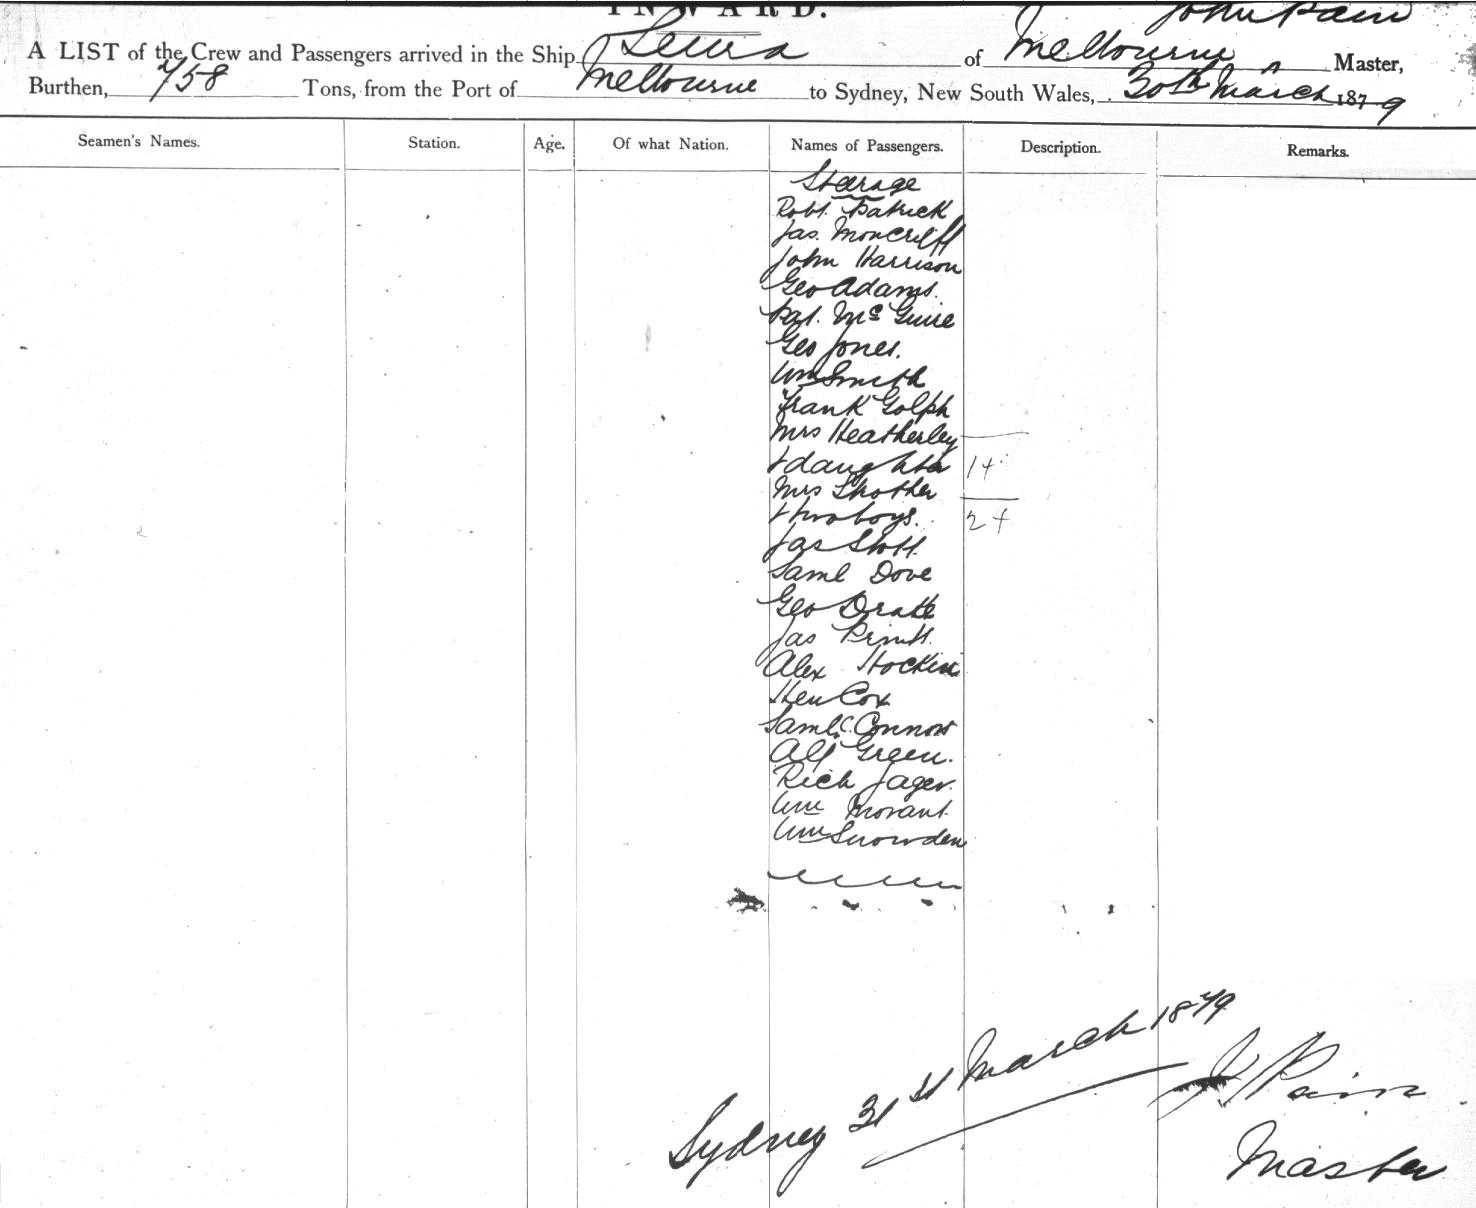 INWARD.
A LIST of the Crew and Passengers arrived in the Ship Leura of Melbourne John Pain Master,
Burthen, 758 Tons, from the Port of Melbourne to Sydney, New South Wales, 30th March 1879
Seamen's Names. Station. Age. Of what Nation. Names of Passengers. Description. Remarks.
Steerage
Robt. Patrick
Jas. Moncrieff
John Harrison
Geo Adams.
Pat. Mc Guire
Geo Jones.
Wm Smith
Frank Golph
Mrs Heatherley
+ daughter 1+
Mrs
+ two boys. 2+
Jas Stott
Saml Dove
Geo Drake
Jas
Alex Hocking
Hen Cox
Saml. Connor
Alf Green.
Rich Jager.
Wm Morant.
Wm Snowden
Sydney 31st March 1879
J Pain
Master